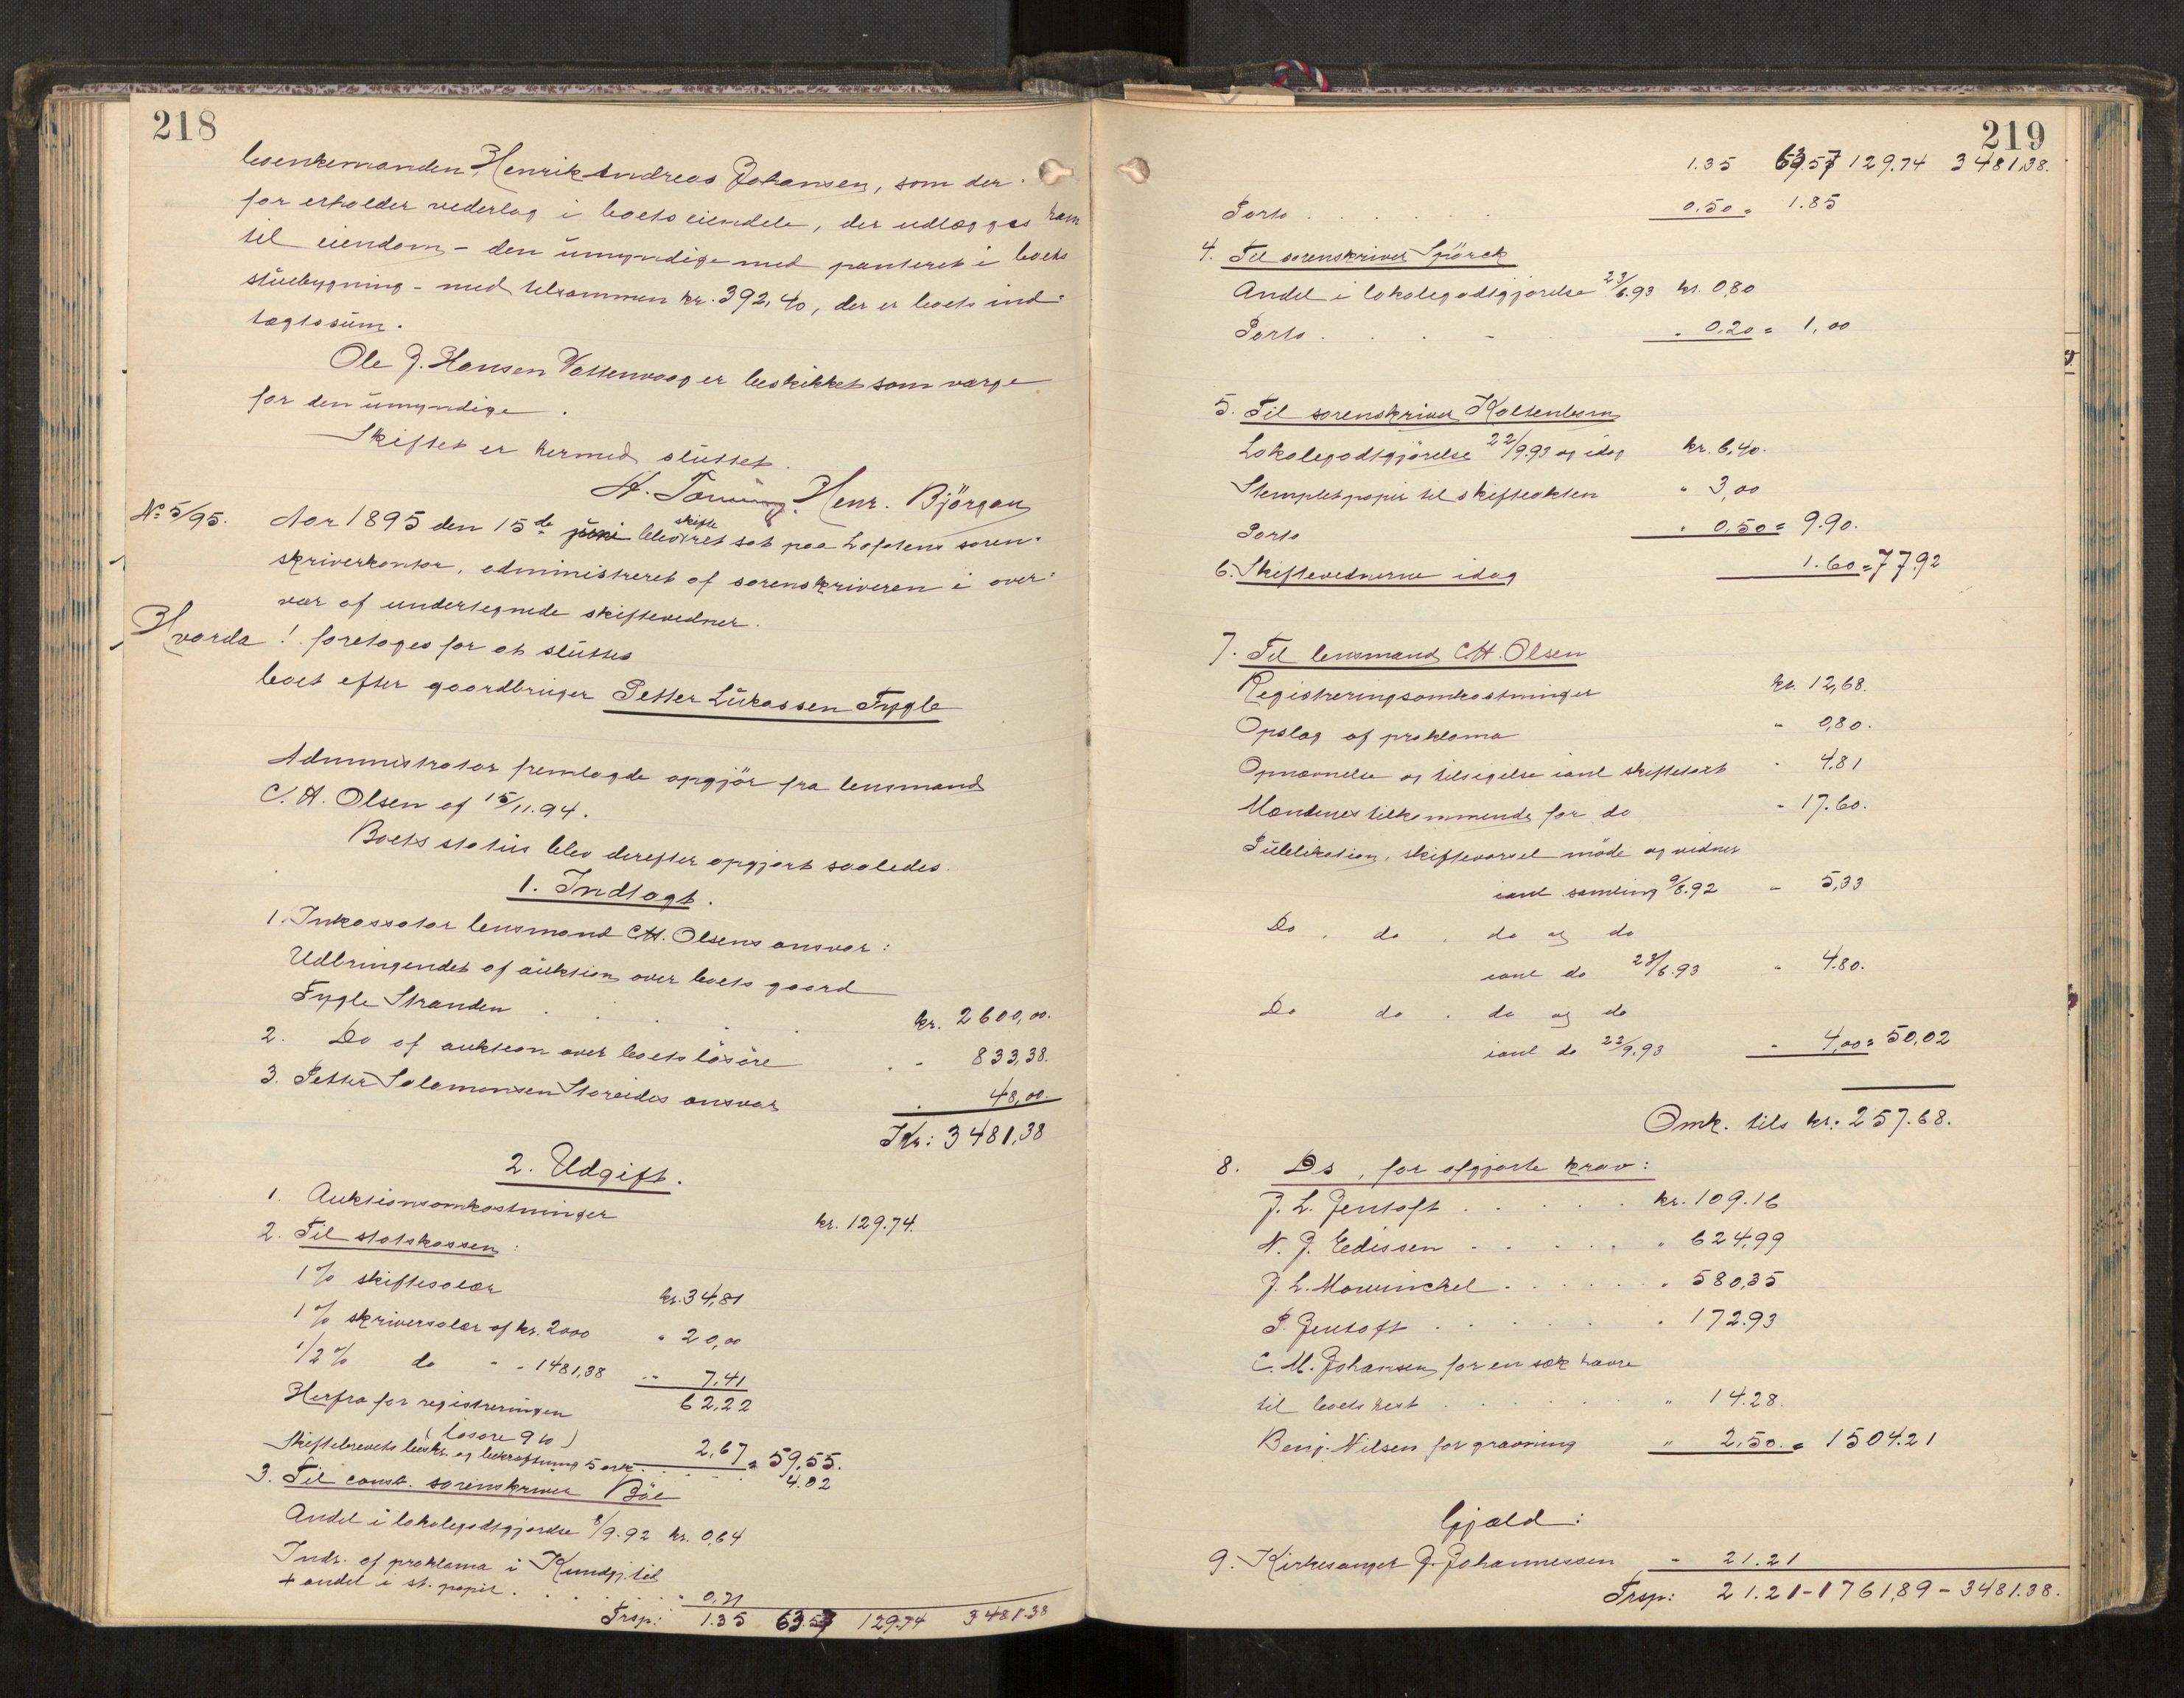 218
enkemanden Henrik Andreas Johansen, som der-
for erholder vederlag i boets eiendele, der udlægges ham
til eiendom - den umyndige med panteret i boets
stuebygning - med tilsammen kr. 392,40, der er boets ind-
tægtssum.
Ole J. Hansen er beskikket som værge
for den umyndige.
Skiftet er hermed sluttet.
Henr. Björgan
No 5/95. Aar 1895 den 15de juni blev skifteret sat paa Lofotens soren-
skriverkontor, administreret af sorenskriveren i over-
vær af undertegnede skiftevidner.
Hvorda! foretoges for at sluttes
boet efter gaardbruger Petter Lukassen Fygle
Administrator fremlagde opgjör fra lensmand
C. H. Olsen af 15/11.94.
Boets status blev derefter opgjort saaledes.
1. Indtægt.
1. Inkassator lensmand C.H. Olsens ansvar:
Udbringendet af auktion over boets gaard
Fygle Stranden . . . . kr. 2600,00.
2. Do af auktion over boets lösöre . - 833,38.
3. Petter Salamonsen Storeides ansvar . 48,00.
Kr: 3481,38
2. Udgift.
1. Auktionsomkostninger kr. 129.74.
2. Til statskassen:
1% skiftesalær kr. 34,81
1% skriversalær af kr. 2000 " 20,00
1/2% do " - 1481,38 -- 7,41
62,22
Herfra for registreringen
(lösöre 9 10) 2,67 = 59,55.
Skiftebrevets beskr. og bekræftning 5 ark . . . 4.02
3. Til const. sorenskriver Böe
Andel i lokalegodtgjörelse 8/9.92 kr. 0,64
Indr. af proklama i Kundgj.tid
+ andel i st. papir . . . . . " 0,71
Trsp: 1.35 63.57 129.74 3481.38
219
1.35 63.57 129.74 3481,38.
Porto . . . . . 0,50 = 1.85
4. Til sorenskriver Spörck
Andel i lokalegodtgjörelse 23/6.93 kr. 0,80
Porto . . . - " 0,20 = 1,00
5. Til sorenskriver Koltenborn
Lokalegodtgjörelse 22/9.93 og idag kr. 6,40.
Stemplet papir til skifteakten " 3,00
Porto " 0,50 = 9.90.
6. Skiftevidnerne idag 1.60 = 77.92
7. Til lensmand C.H. Olsen
Registreringsomkostninger kr. 12,68.
Opslag af proklama " 0,80.
Opnævnelse og tilsigelse ianl skiftetaxt " 4.81
Mændenes tilkommende for do - 17.60.
Publikation, skiftevarsel möde og vidner
ianl samling 9/8.92 " 5,33
Do . do . do og do
ianl do 23/6.93 " 4.80.
Do do . do og do
ianl do 22/9.93 " 4,00 = 50,02
Omk. tils kr: 257.68.
8. Ds, for afgjorte krav:
J. L. Jentoft . . . . . kr. 109.16
N. J. Edissen . . . . . " 624,99
J. L. Mowinckel . . . . . " 580,35
P. Jentoft . . . . . " 172.93
C. M. Johansen for en sæk havre
til boets hest . . . . . " 14.28.
Benj. Nilsen for gravning " 2,50. = 1504.21
Gjæld:
9. Kirkesanger J. Johannessen - 21.21
Trsp: 21.21 - 1761,89 - 3481.38.